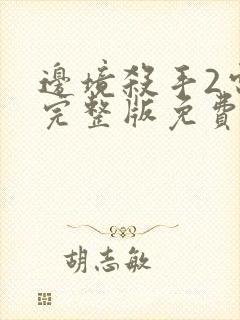 邊境殺手2
完整版免費
胡志敏